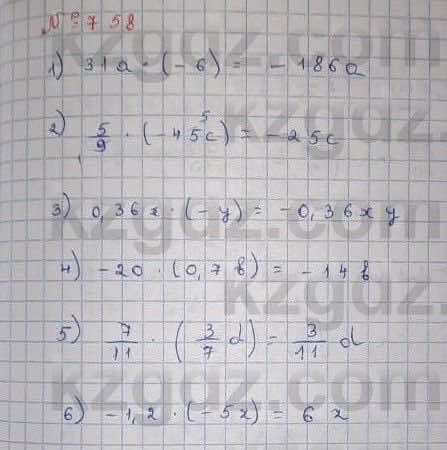 № 758
1) 31a · (-6) = -186a
2) 5/9 · (-45c) = -25c
5
3) 0,36x · (-y) = -0,36xy
4) -20 · (0,7b) = -14b
5) 7/11 · (3/7 d) = 3/11 d
6) -1,2 · (-5x) = 6x
kzgdz.com
kzgdz.com
kzgdz.com
kzgdz.com